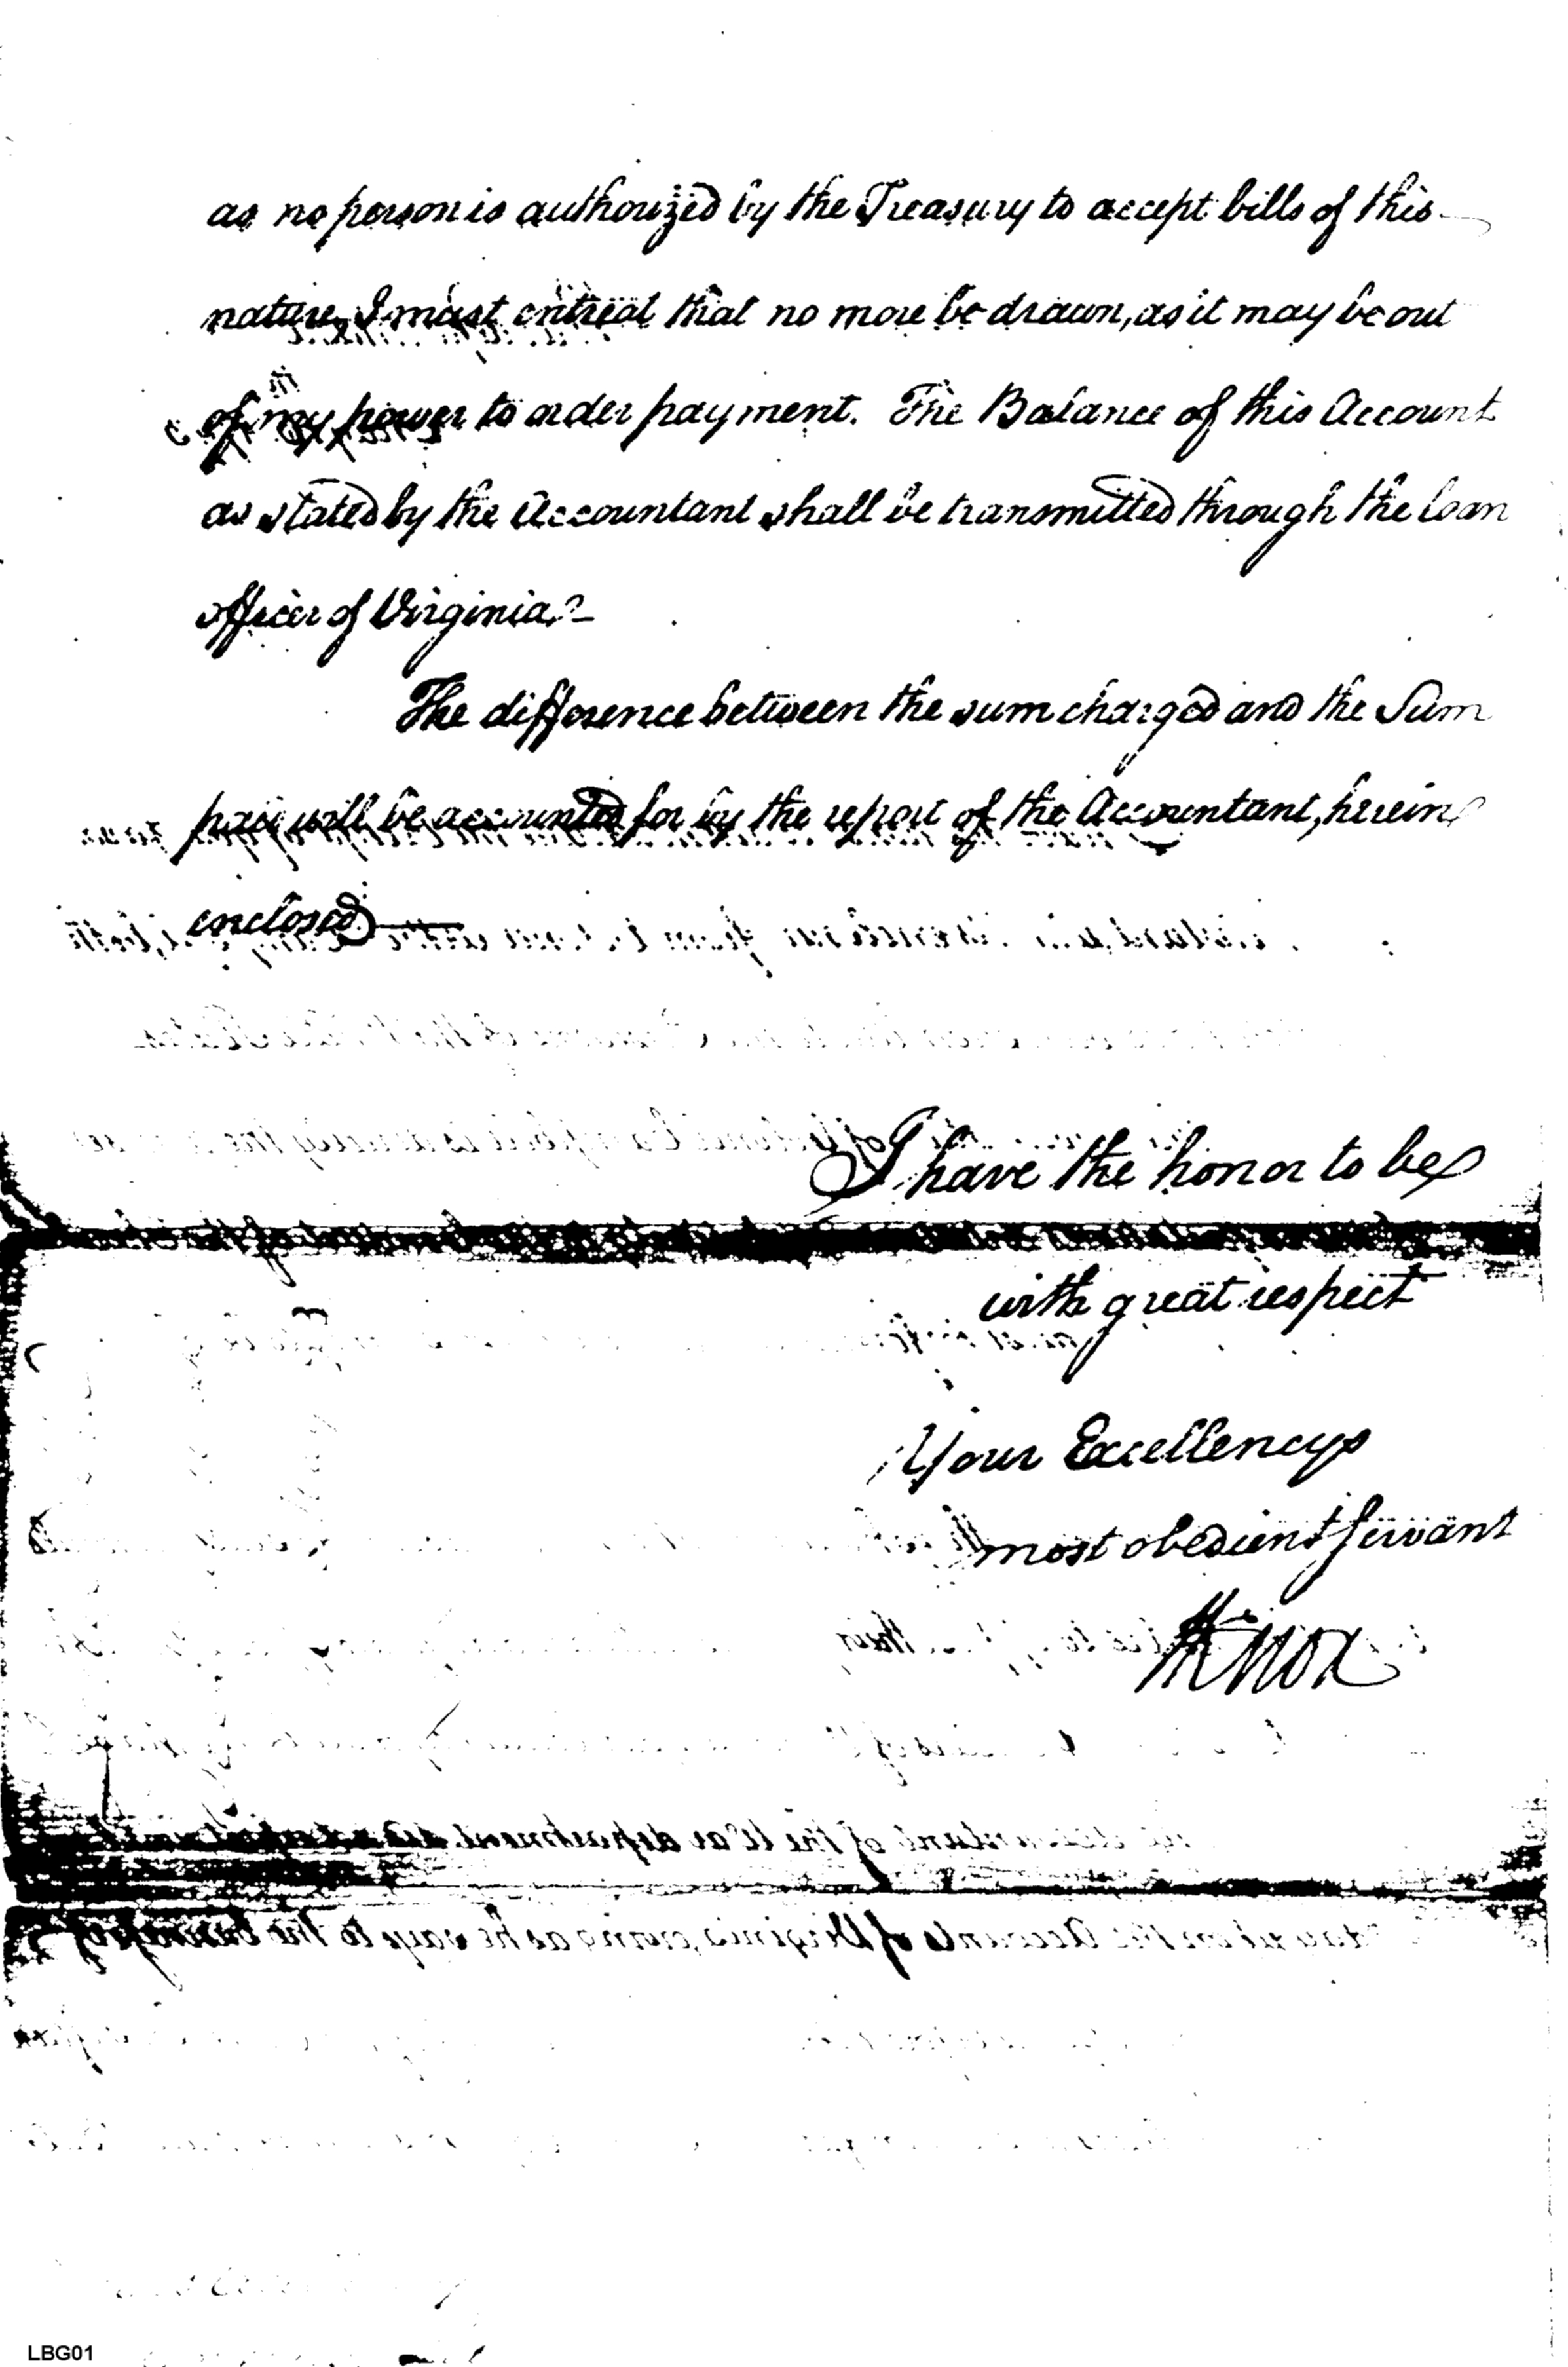 as no person is authorized by the Treasury to accept bills of this
nature, I must entreat that no more be drawn, as it may be out
of my power to order payment. The Balance of this Account
as stated by the Accountant shall be transmitted through the loan
officer of Virginia.
The difference between the sum charged and the Sum
paid will be accounted for by the report of the Accountant, herein
enclosed
I have the honor to be
with great respect
Your Excellencys
most obedient servant
HKnox
LBG01